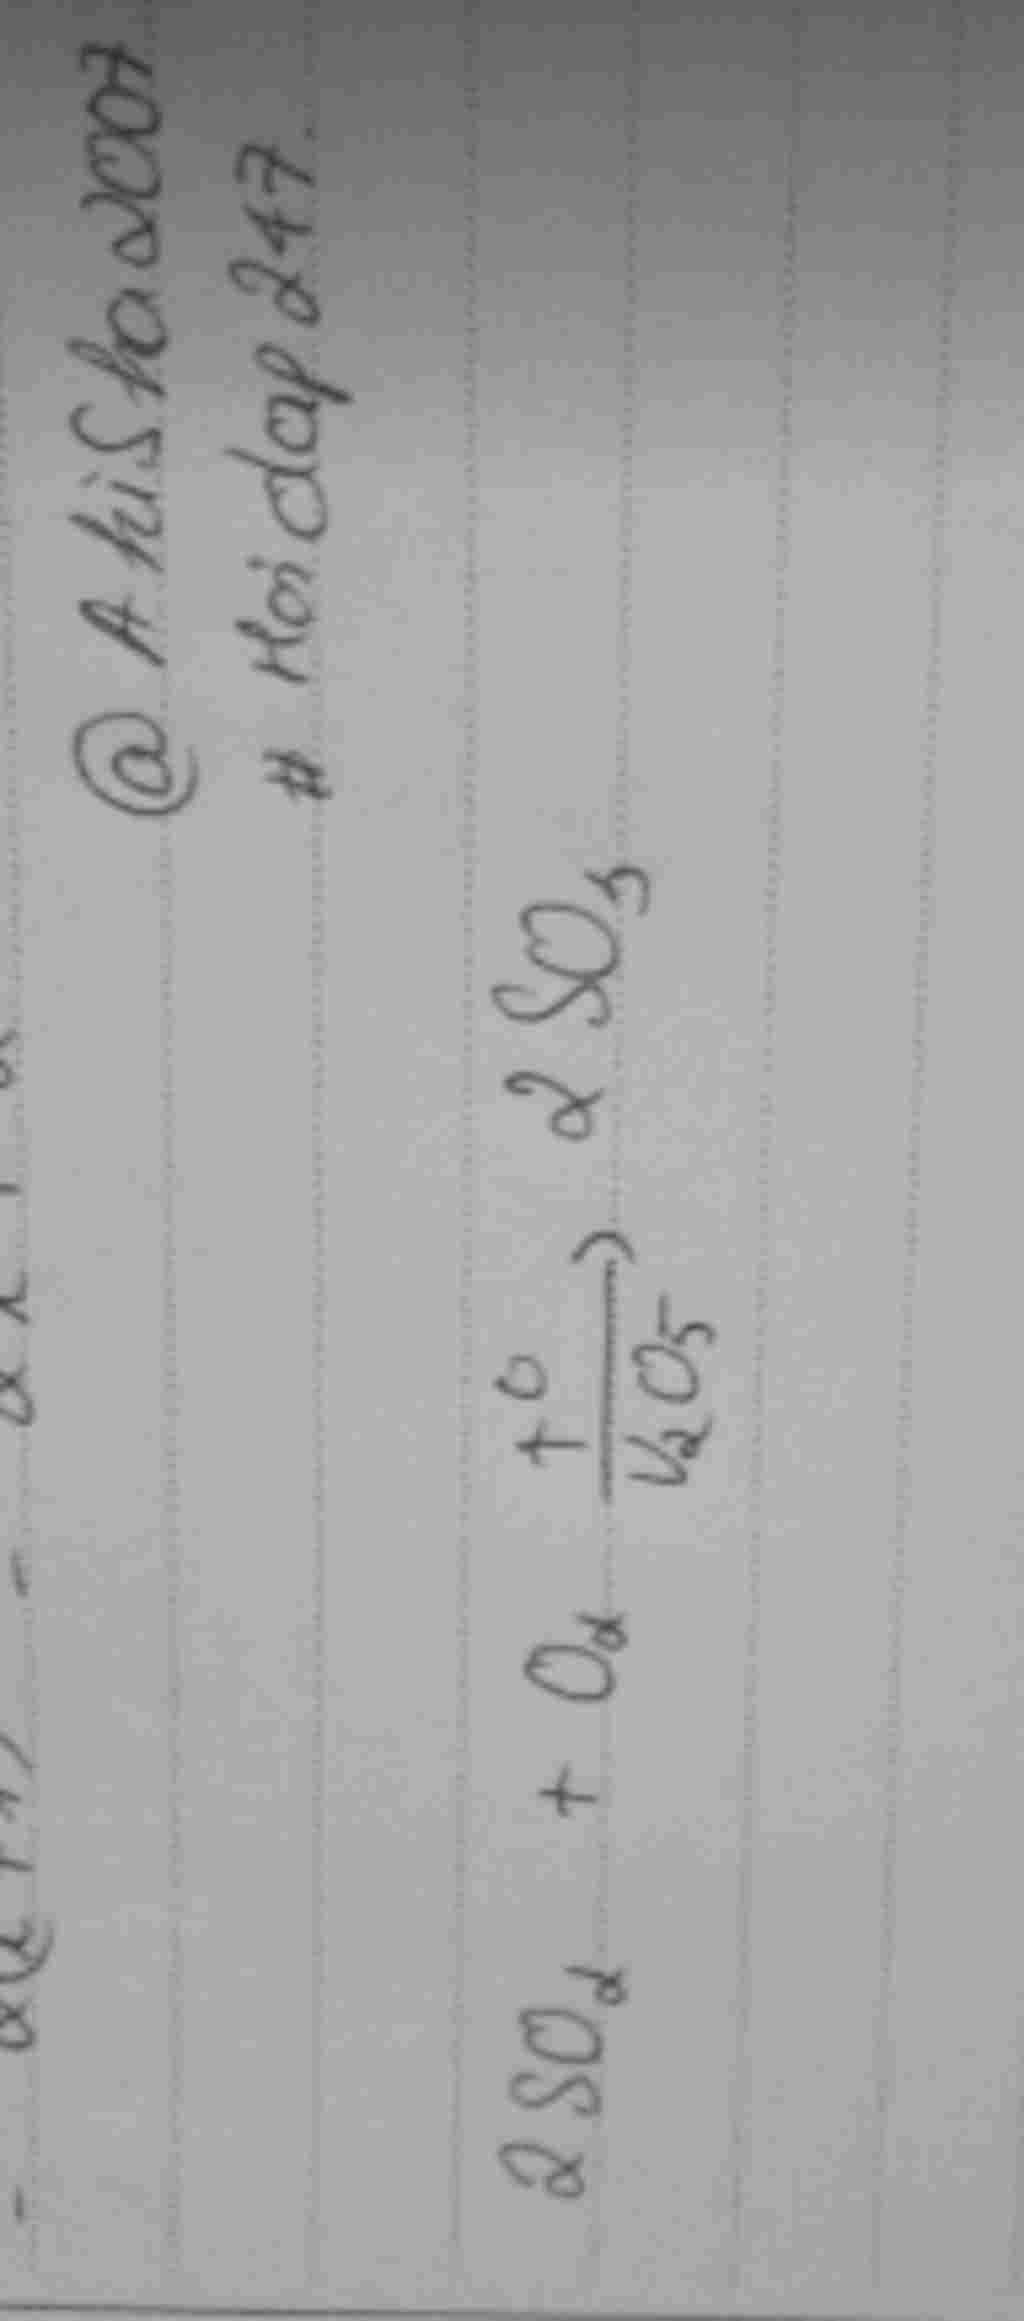 @ AkiSha2007
# Hoidap247
2SO2 + O2 t° V2O5 → 2SO3